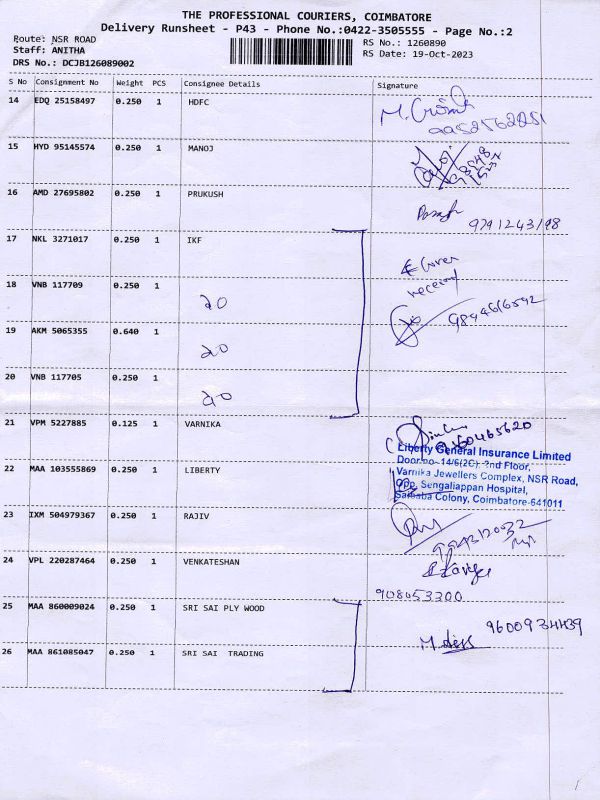 THE PROFESSIONAL COURIERS, COIMBATORE
Delivery Runsheet - P43 - Phone No.:0422-3505555 - Page No.:2
Route: NSR ROAD
Staff: ANITHA
DRS No.: DCJB126089002
RS No.: 1260890
RS Date: 19-Oct-2023
S No Consignment No Weight PCS Consignee Details Signature
14 EDQ 25158497 0.250 1 HDFC
15 HYD 95145574 0.250 1 MANOJ
16 AMD 27695802 0.250 1 PRUKUSH
9791243198
17 NKL 3271017 0.250 1 IKF
received
18 VNB 117709 0.250 1
9894616592
19 AKM 5065355 0.640 1
20 VNB 117705 0.250 1
21 VPM 5227885 0.125 1 VARNIKA
Liberty General Insurance Limited
Door.no- 14/6(2C), 2nd Floor,
22 MAA 103555869 0.250 1 LIBERTY
Varnika Jewellers Complex, NSR Road,
Opp. Sengaliappan Hospital,
Saibaba Colony, Coimbatore-641011
23 IXM 504979367 0.250 1 RAJIV
24 VPL 220287464 0.250 1 VENKATESHAN
908053300
25 MAA 860009024 0.250 1 SRI SAI PLY WOOD
26 MAA 861085047 0.250 1 SRI SAI TRADING